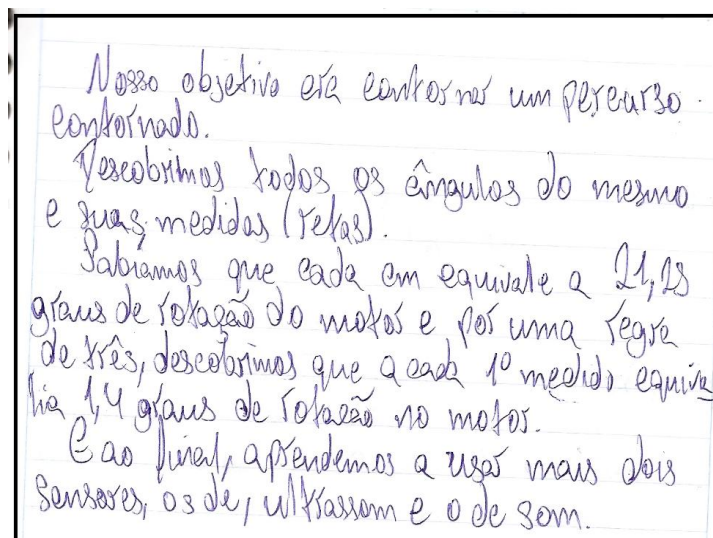 Nosso objetivo era contornar um percurso
contornado.
Descobrimos todos os ângulos do mesmo
e suas medidas (retas).
Sabíamos que cada cm equivale a 21,25
graus de rotação do motor e por uma regra
de três, descobrimos que a cada 1º medido equiva
lia 1,4 graus de rotação no motor.
E ao final, aprendemos a usar mais dois
sensores, os de, ultrassom e o de som.